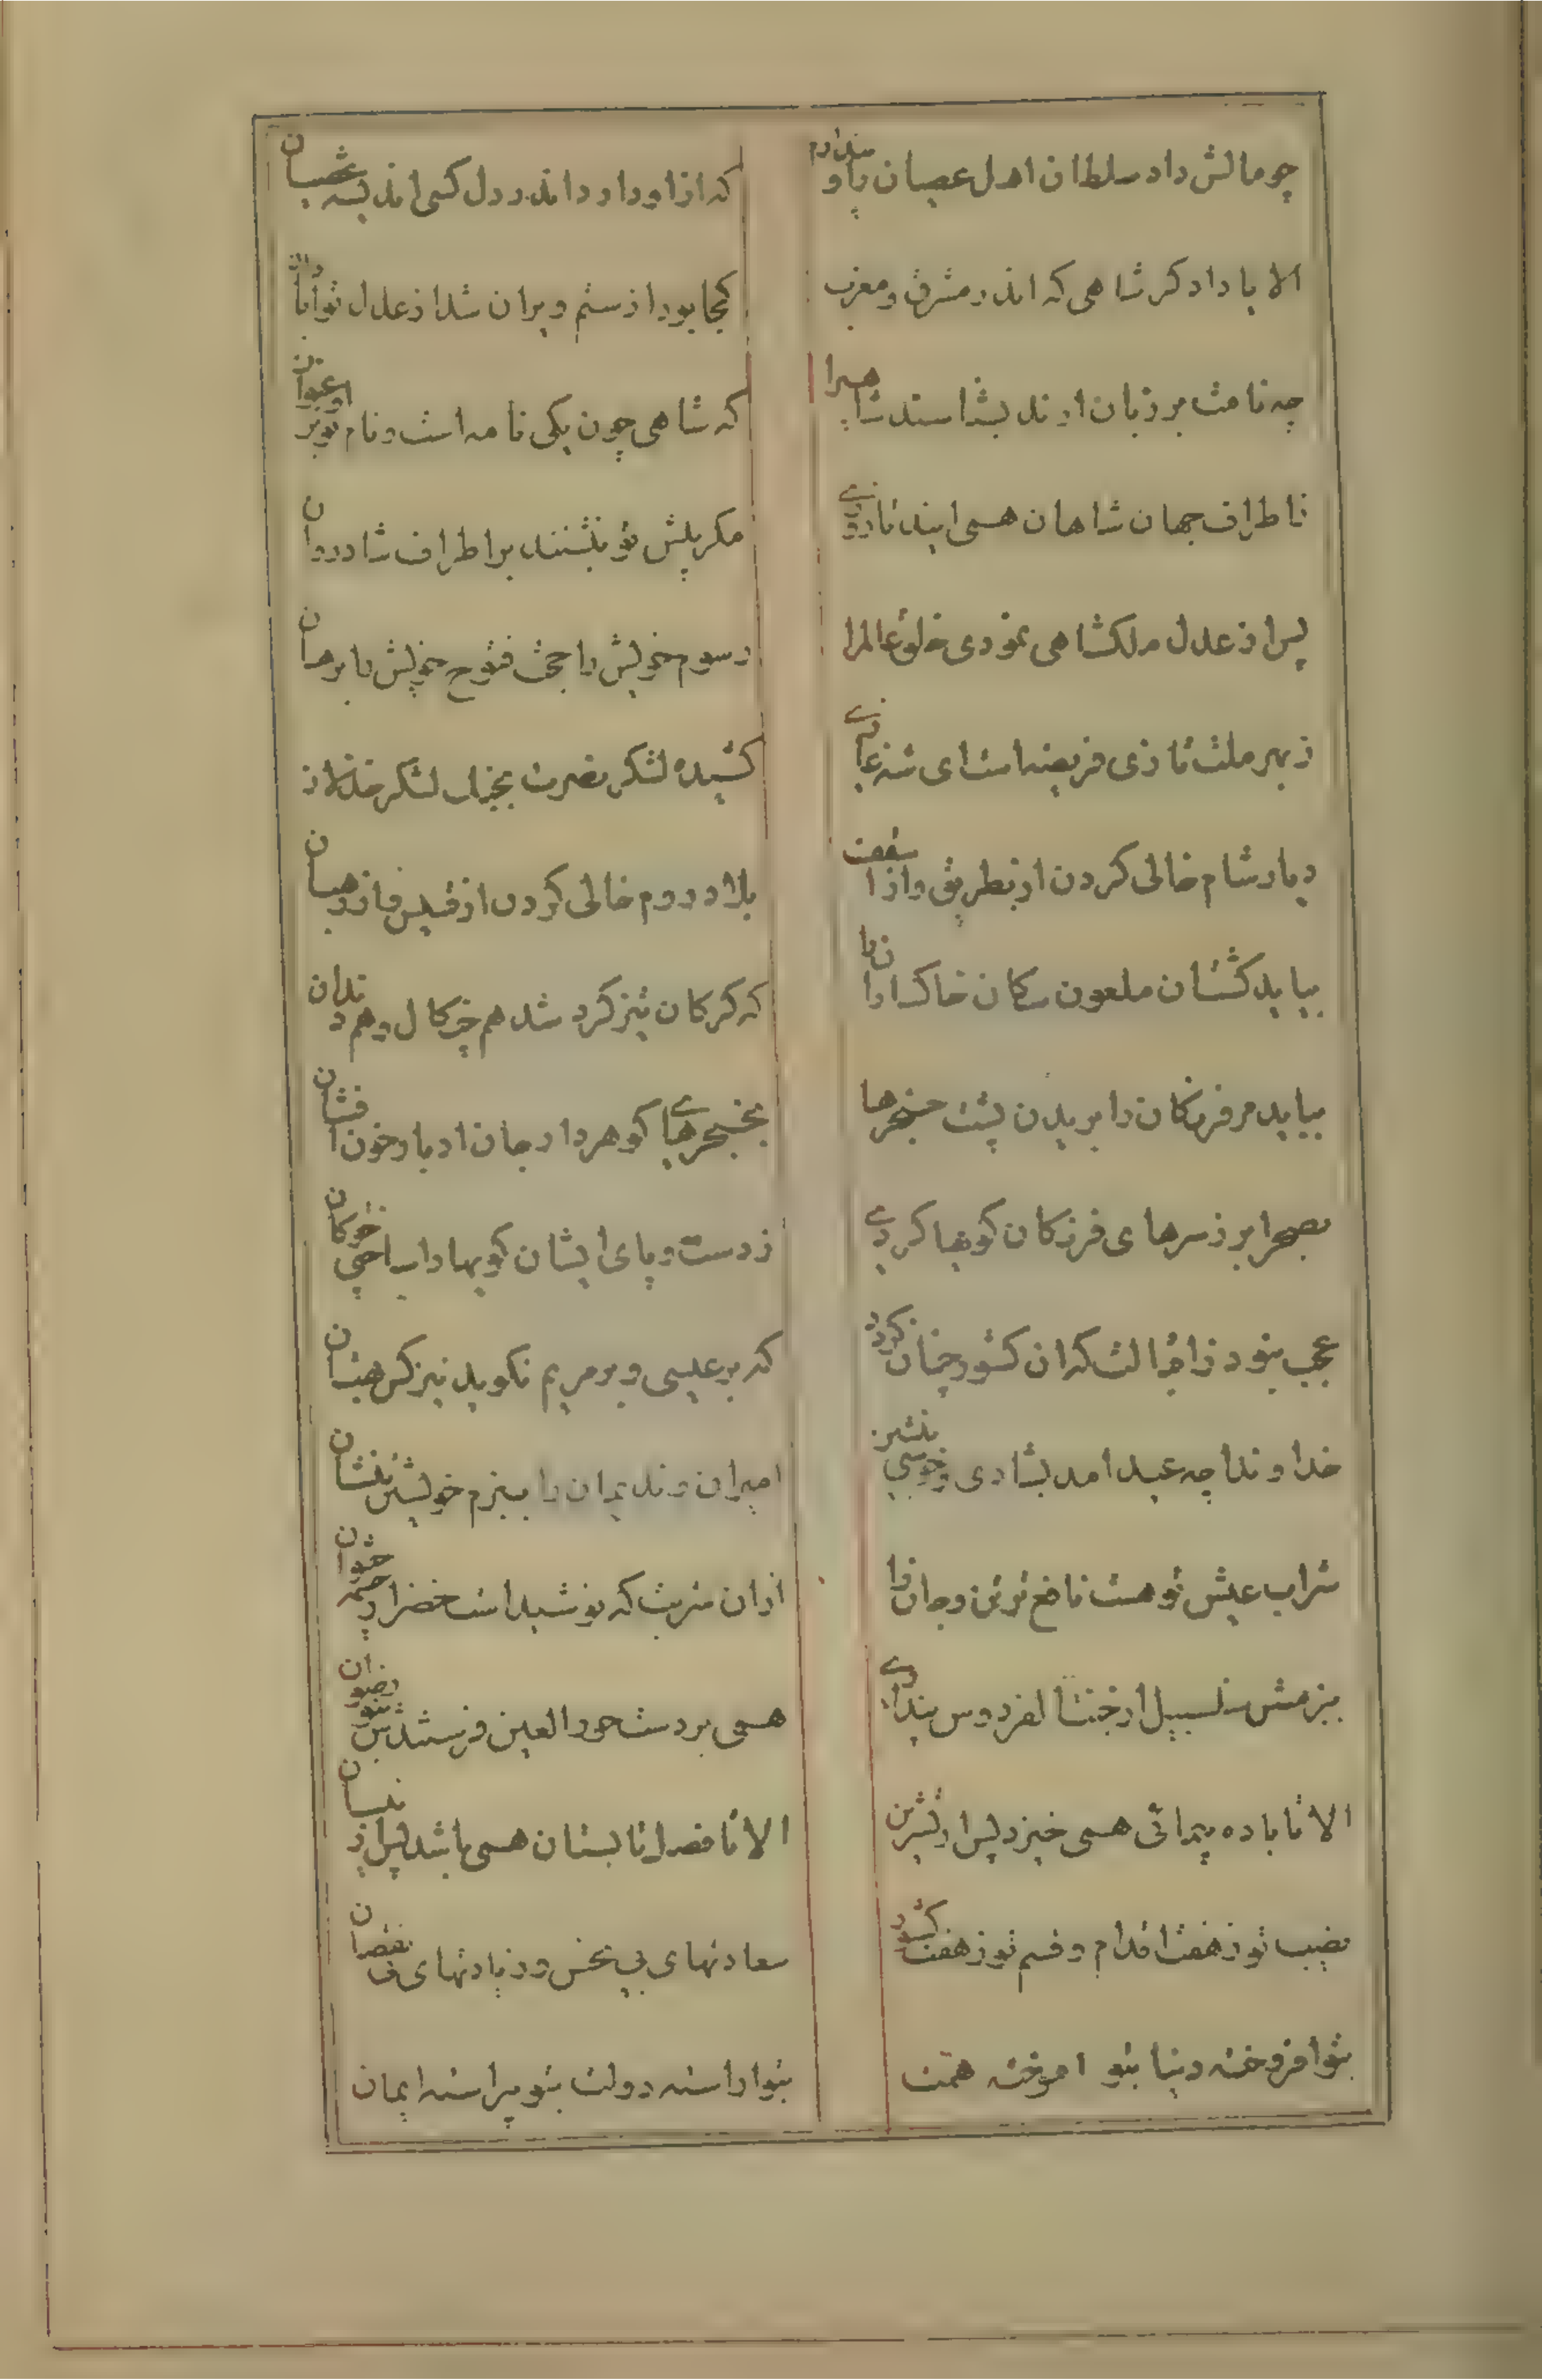 چو مالش داد سلطان اهل عصیان را و
که از او داد و داند در دل کسی اندیشه عصیان
الا یا دادگر شاهی که اندر مشرق و مغرب
کجا بود از ستم ویران شد از عدل تو آبادان
چه نامت بر زبان ارند بشناسند شاهیرا
که شاهی چون یکی نامه است و نام تو بر او عنوان
ز اطراف جهان شاهان همی ایند تا روزی
مگر پیش تو بنشینند بر اطراف شادروان
پس از عدل ملکشاهی نمودی خلق عالم را
رسوم خویش را حجت فتوح خویش را برهان
ز بهر ملت تازی فریضه است ای شه غازی
کشیده لشکر نصرت بجنگ لشکر خذلان
دیار شام خالی کردن از بطریق و از اسقف
بلاد روم خالی کردن از قسیس و از رهبان
بباید کشت آن ملعون سگان خاکساران را
که گرگان تیز کرد شد هم چنگال و هم دندان
بباید مر فرنگان را بریدن پشت حنجرها
بخنجرهای گوهردار جان ادبار خون افشان
بصحرا بر ز سرهای فرنگان گویها کردی
ز دست و پای ایشان گویها را ساختی چوگان
عجب نبود ز اقبالت که ان کشور چنان گردد
که بر عیسی و بر مریم نگوید نیز کس هتان
خداوندا چه عید امد بشادی و خوشی بنشین
امیران و ندیمان را ببزم خویشتن بنشان
شراب عیش تو هست نافع تر تن و جان را
از ان شربت که نوشید است خضر از چشمه حیوان
ببزمش سلسبیل از جنت الفردوس پنداری
همی بر دست حور العین فرستد بتو رضوان
الا تا باده پیمائی همی خیزد پس از تشرین
الا تا فصل تابستان همی باشد پس از نیسان
نصیب تو ز هفت اقلام و قسم تو ز هفت کشور
سعادتهای بی نحس و زیادتهای بی نقصان
بتو افروخته دنیا بتو اموخته همت
بتو اراسته دولت بتو پیراسته ایمان